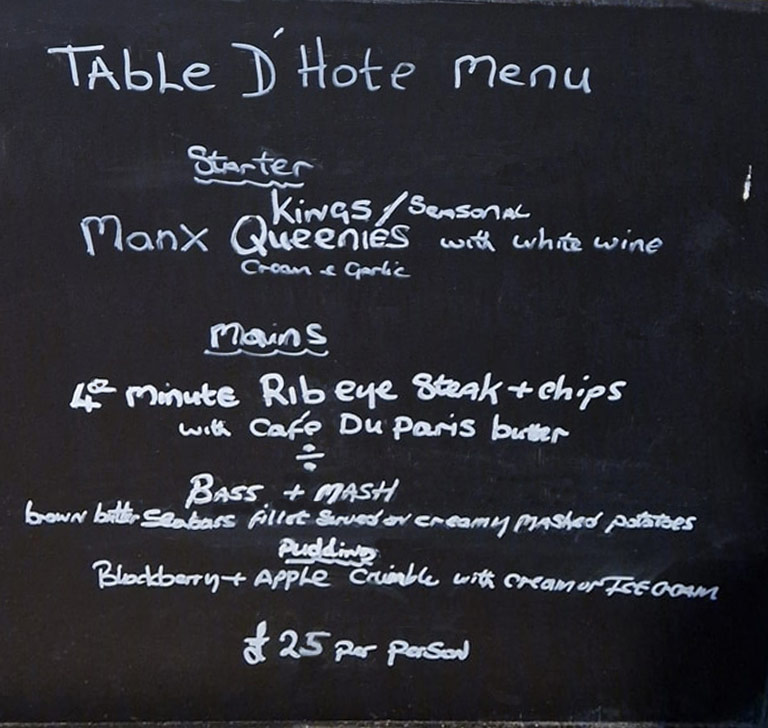 Table D'Hote Menu
Starter
Kings / Seasonal
Manx Queenies with white wine
Cream & Garlic
Mains
minute Rib eye Steak + chips
with Café Du Paris butter
÷
Bass + Mash
brown butter Seabass fillet served on creamy mashed potatoes
Pudding
Blackberry + Apple Crumble with cream or Ice cream
£25 per person